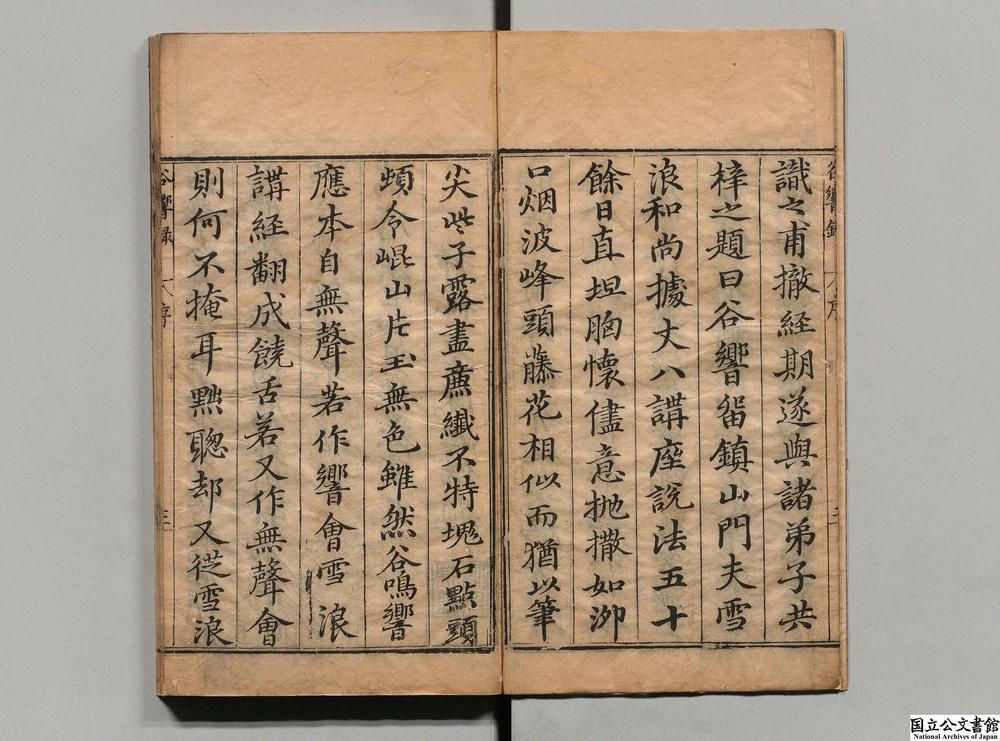 谷響錄 序 二
識之甫撤経期遂與諸弟子共
梓之題曰谷響畱鎮山門夫雪
浪和尚據丈八講座説法五十
餘日直坦胸懷儘意抛撒如泖
口烟波峰頭藤花相似而猶以筆
尖些子露盡廉纖不特塊石點頭
頓令崐山片玉無色雖然谷鳴響
應本自無聲若作響會雪浪
講経翻成饒舌若又作無聲會
則何不掩耳黜聰却又従雪浪
谷響錄 序 三
国立公文書館
National Archives of Japan